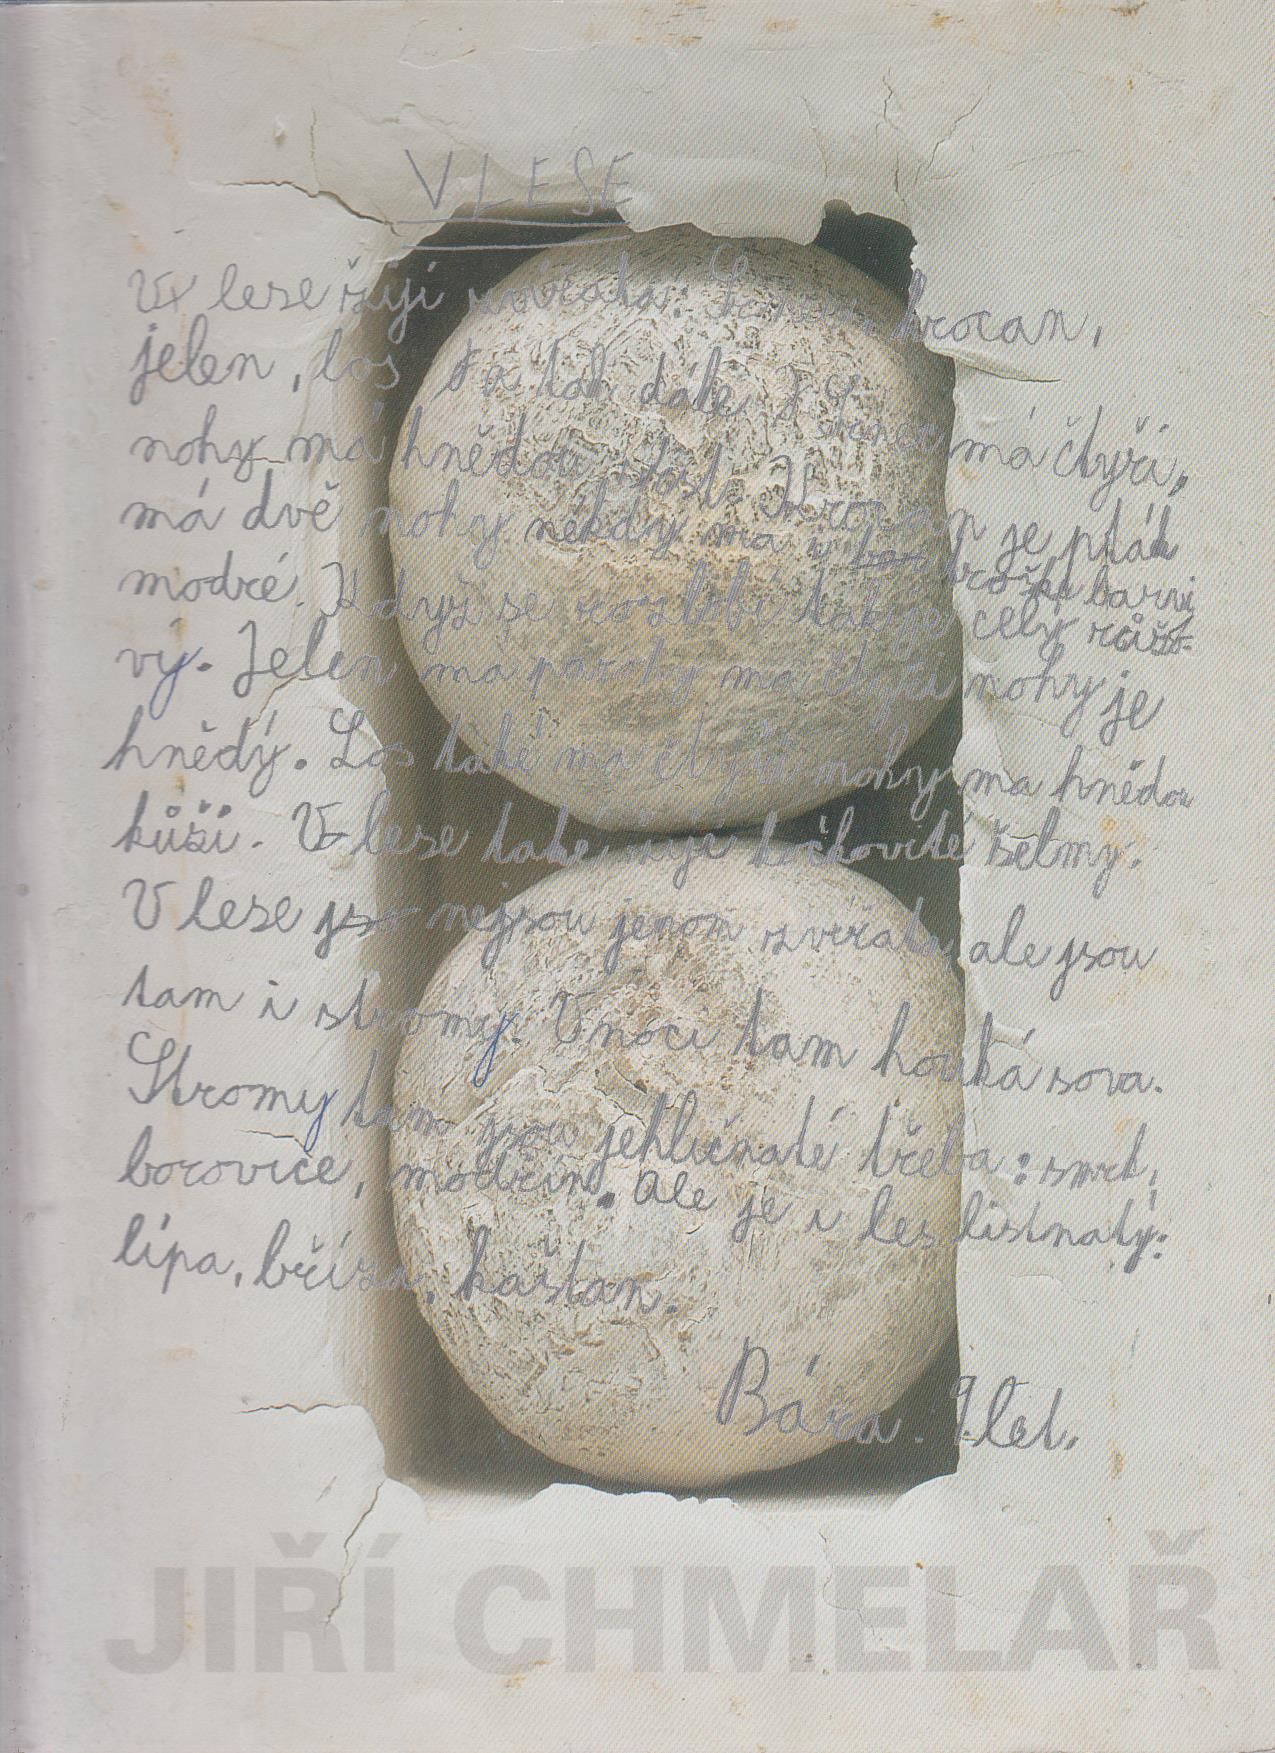 V LESE
V lese žijí zvířata: krocan,
jelen, los a tak dále.
nohy má hnědou srst. Krocan má čtyři,
má dvě nohy někdy ma i je pták
modré. Když se rozzlobí tak je celý barvi
vý. Jelen ma parohy ma čtyři nohy je
hnědý. Los také ma čtyři nohy ma hnědou
kůži. V lese take žijí kočkovité šelmy.
V lese jso nejsou jenom zvířata, ale jsou
tam i stromy. V noci tam houká sova.
Stromy tam jsou jehličnaté třeba: smrk,
borovice, modřín. Ale je i les listnatý:
lípa, bříza, kaštan.
Bára. 9. let.
JIŘÍ CHMELAŘ